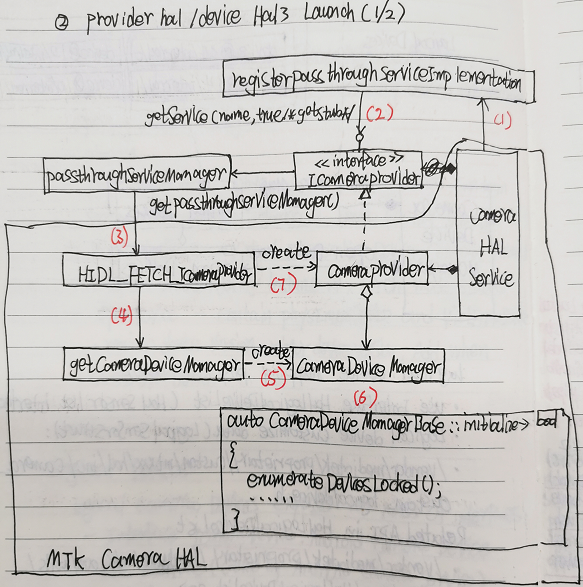 ② provider hal/device Hal3 Launch (1/2)
registerpassthroughServiceImplementation
getService(name, true/*getstub*/)
(2)
(1)
<<interface>>
ICameraProvider
passthroughServiceManager
getpassthroughserviceManager()
camera
HAL
Service
(3)
HIDL_FETCH_ICameraProvider
create
(7)
cameraprovider
(4)
getCameraDeviceManager
create
(5)
CameraDeviceManager
(6)
auto CameraDeviceManagerBase::initialize→bool
{
enumerateDevicesLocked();
......
}
MTK Camera HAL